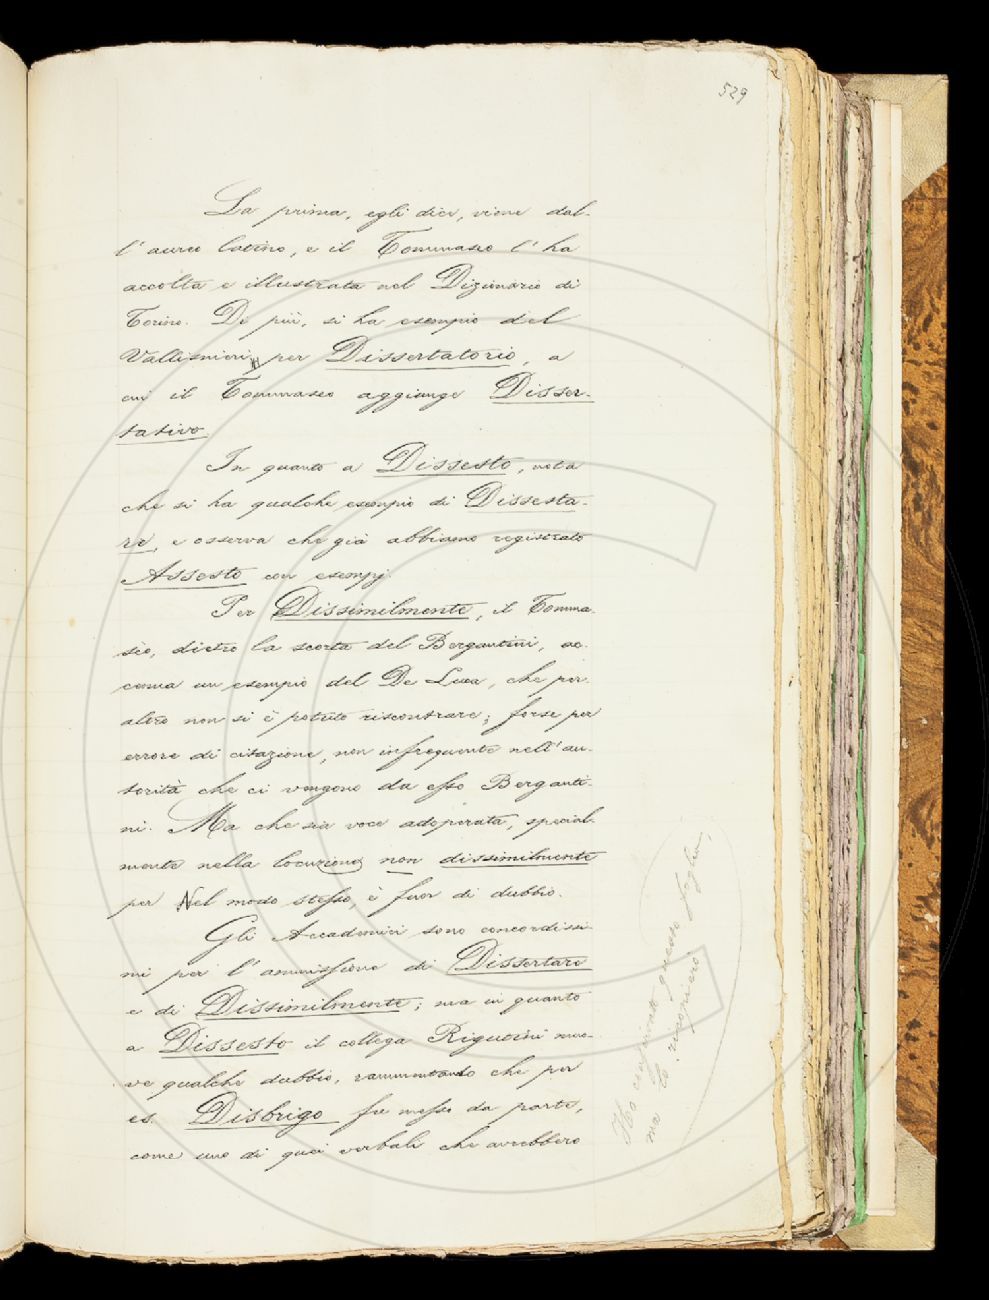 529
La prima, egli dice, viene dal-
l'aureo latino, e il Tommaseo l'ha
accolta e illustrata nel Dizionario di
Torino. Di più, si ha esempio del
Vallisnieri per Dissertatorio, a
cui il Tommaseo aggiunge Disser-
tativo.
In quanto a Dissesto, nota
che si ha qualche esempio di Dissesta-
re, e osserva che già abbiamo registrato
Assesto con esempj.
Per Dissimilmente, il Tomma-
sèo, dietro la scorta del Bergantini, ac-
cenna un esempio del De Luca, che per
altro non si è potuto riscontrare; forse per
errore di citazione, non infrequente nell'au-
torità che ci vengono da esso Berganti-
ni. Ma che sia voce adoperata, special-
mente nella locuzione non dissimilmente
per Nel modo stesso, è fuor di dubbio.
Gli Accademici sono concordissi-
mi per l'ammissione di Dissertare
e di Dissimilmente; ma in quanto
a Dissesto il collega Rigutini muo-
ve qualche dubbio, rammentando che per
es. Disbrigo fu messo da parte,
come uno di quei verbali che avrebbero
Ho conservato questo foglio,
ma lo ricopierò